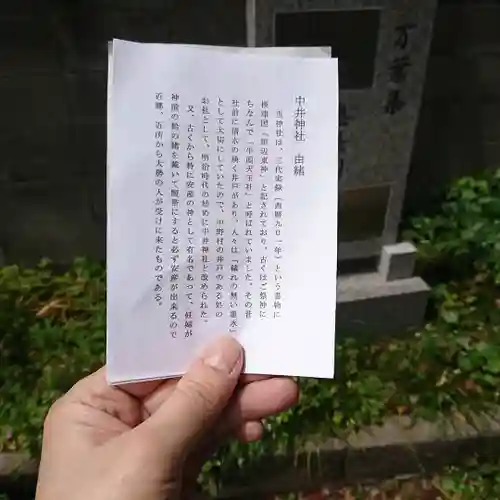 中井神社　由緒
当神社は、三代実録（西暦九〇一年）という書物に
播磨国「田辺東神」と記されており、古くはご祭神に
ちなんで「牛頭天王社」と呼ばれていました。その昔
社前に清水の湧く井戸があり、人々は「穢れの無い霊水」
として大切にしていたので、中野村の井戸のある処の
お社として、明治時代の始めに中井神社と改められた。
又、古くから特に安産の神として有名であって、妊婦が
神前の鈴の緒を戴いて腹帯にすると必ず安産が出来るので
近郷、近所から大勢の人が受けに来たものである。
万葉集